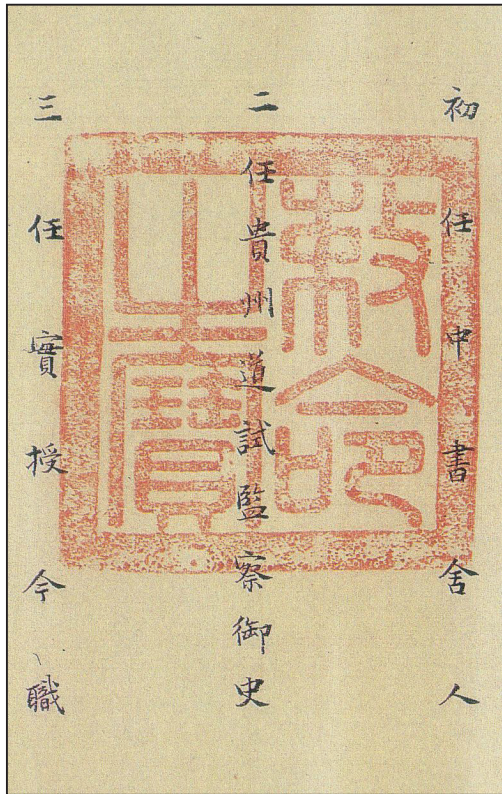 初任中書舍人
二任貴州道試監察御史
三任實授今職
敕命之寶